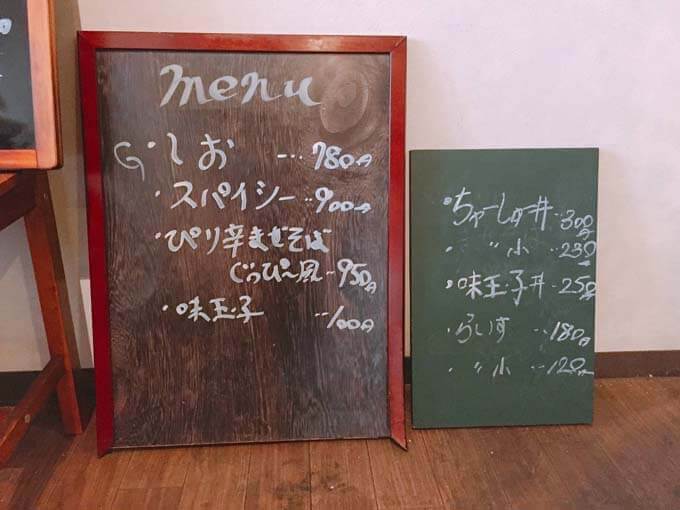 menu
G・しお ---780円
・スパイシー --900円
・ぴり辛まぜそば
ぐっぴ〜風 -950円
・味玉子 --100円
・ちゃーしゅー丼 --300円
・ 〃 小 --230円
・味玉子丼 --250円
・らいす --180円
・ 〃 小 --120円